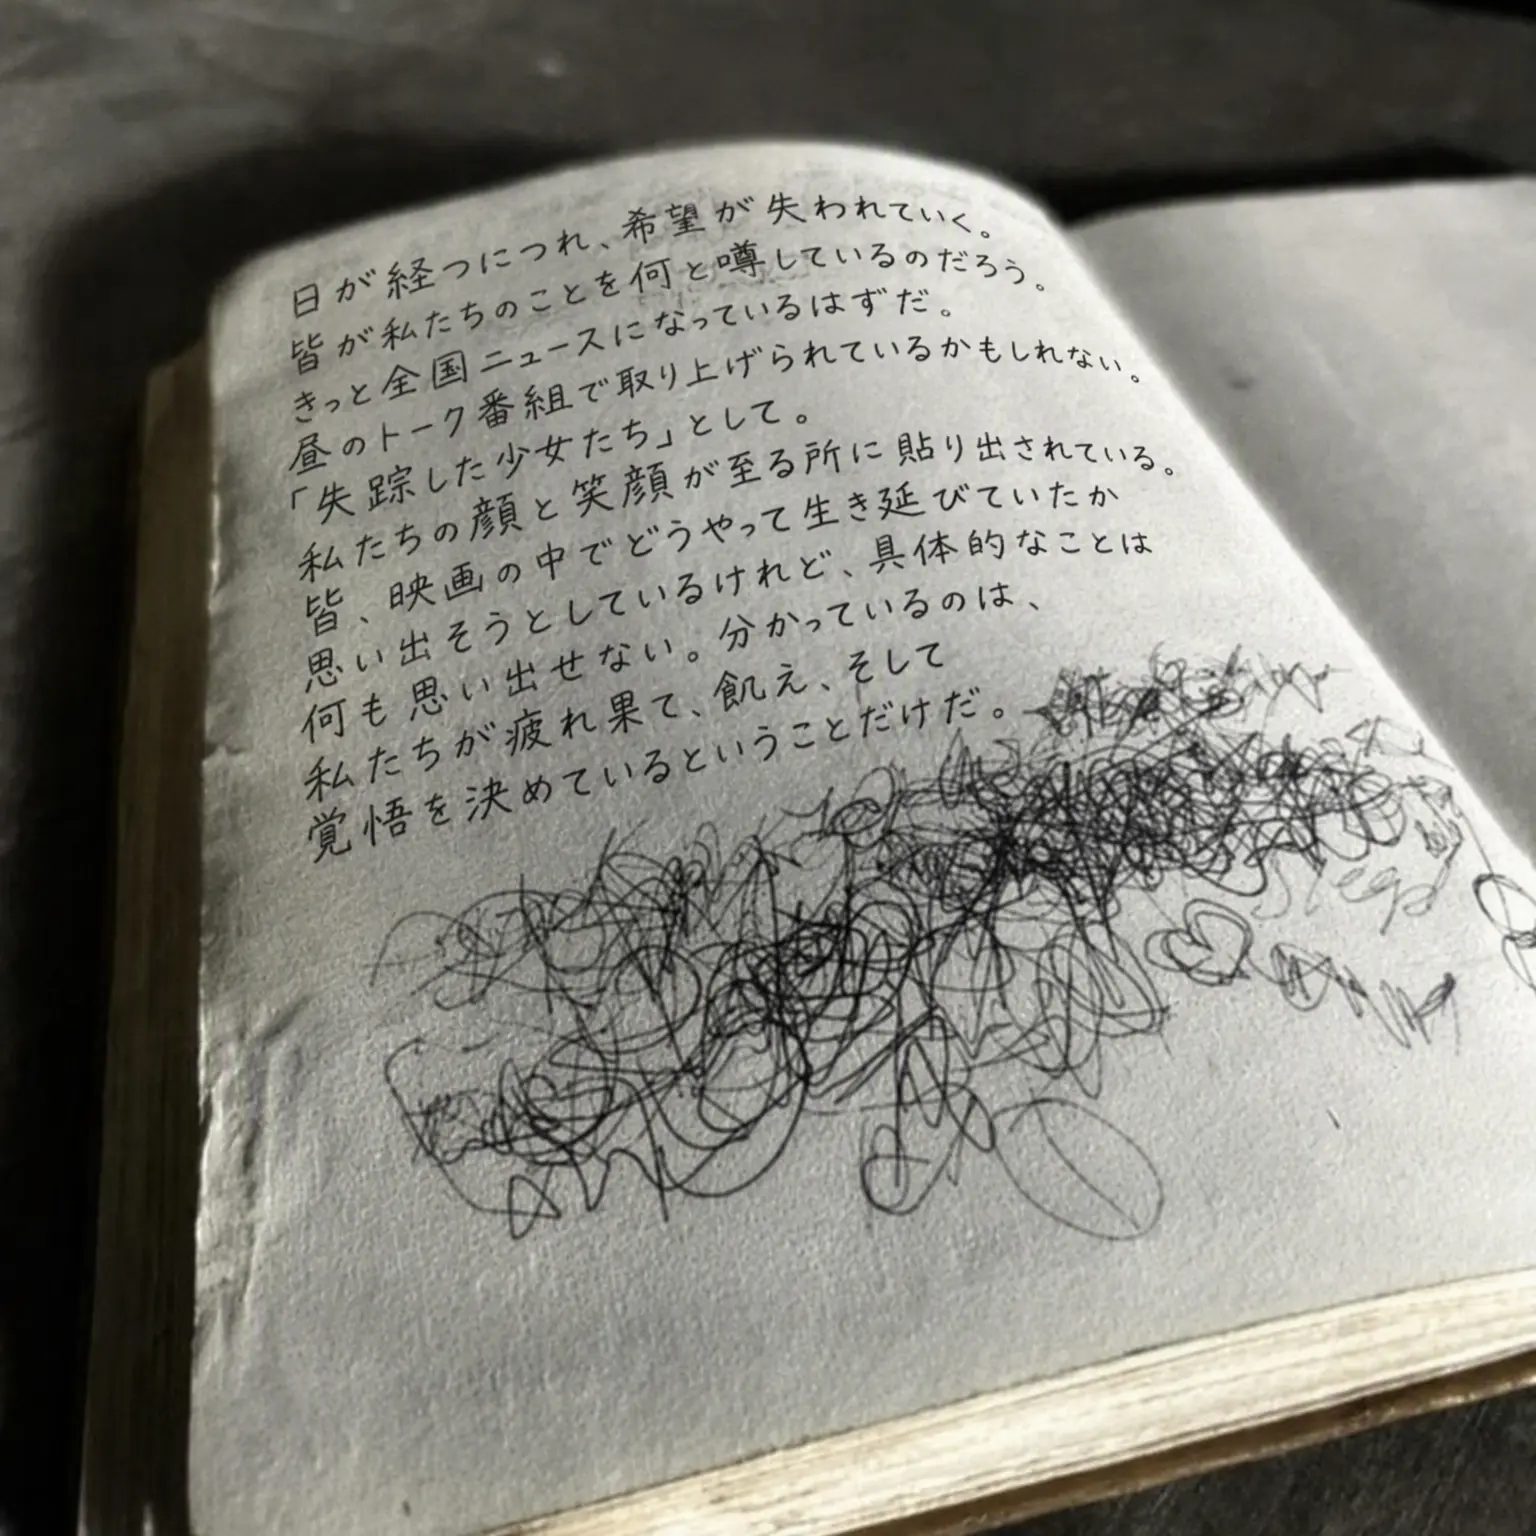 日が経つにつれ、希望が失われていく。
皆が私たちのことを何と噂しているのだろう。
きっと全国ニュースになっているはずだ。
昼のトーク番組で取り上げられているかもしれない。
「失踪した少女たち」として。
私たちの顔と笑顔が至る所に貼り出されている。
皆、映画の中でどうやって生き延びていたか
思い出そうとしているけれど、具体的なことは
何も思い出せない。分かっているのは、
私たちが疲れ果て、飢え、そして
覚悟を決めているということだけだ。